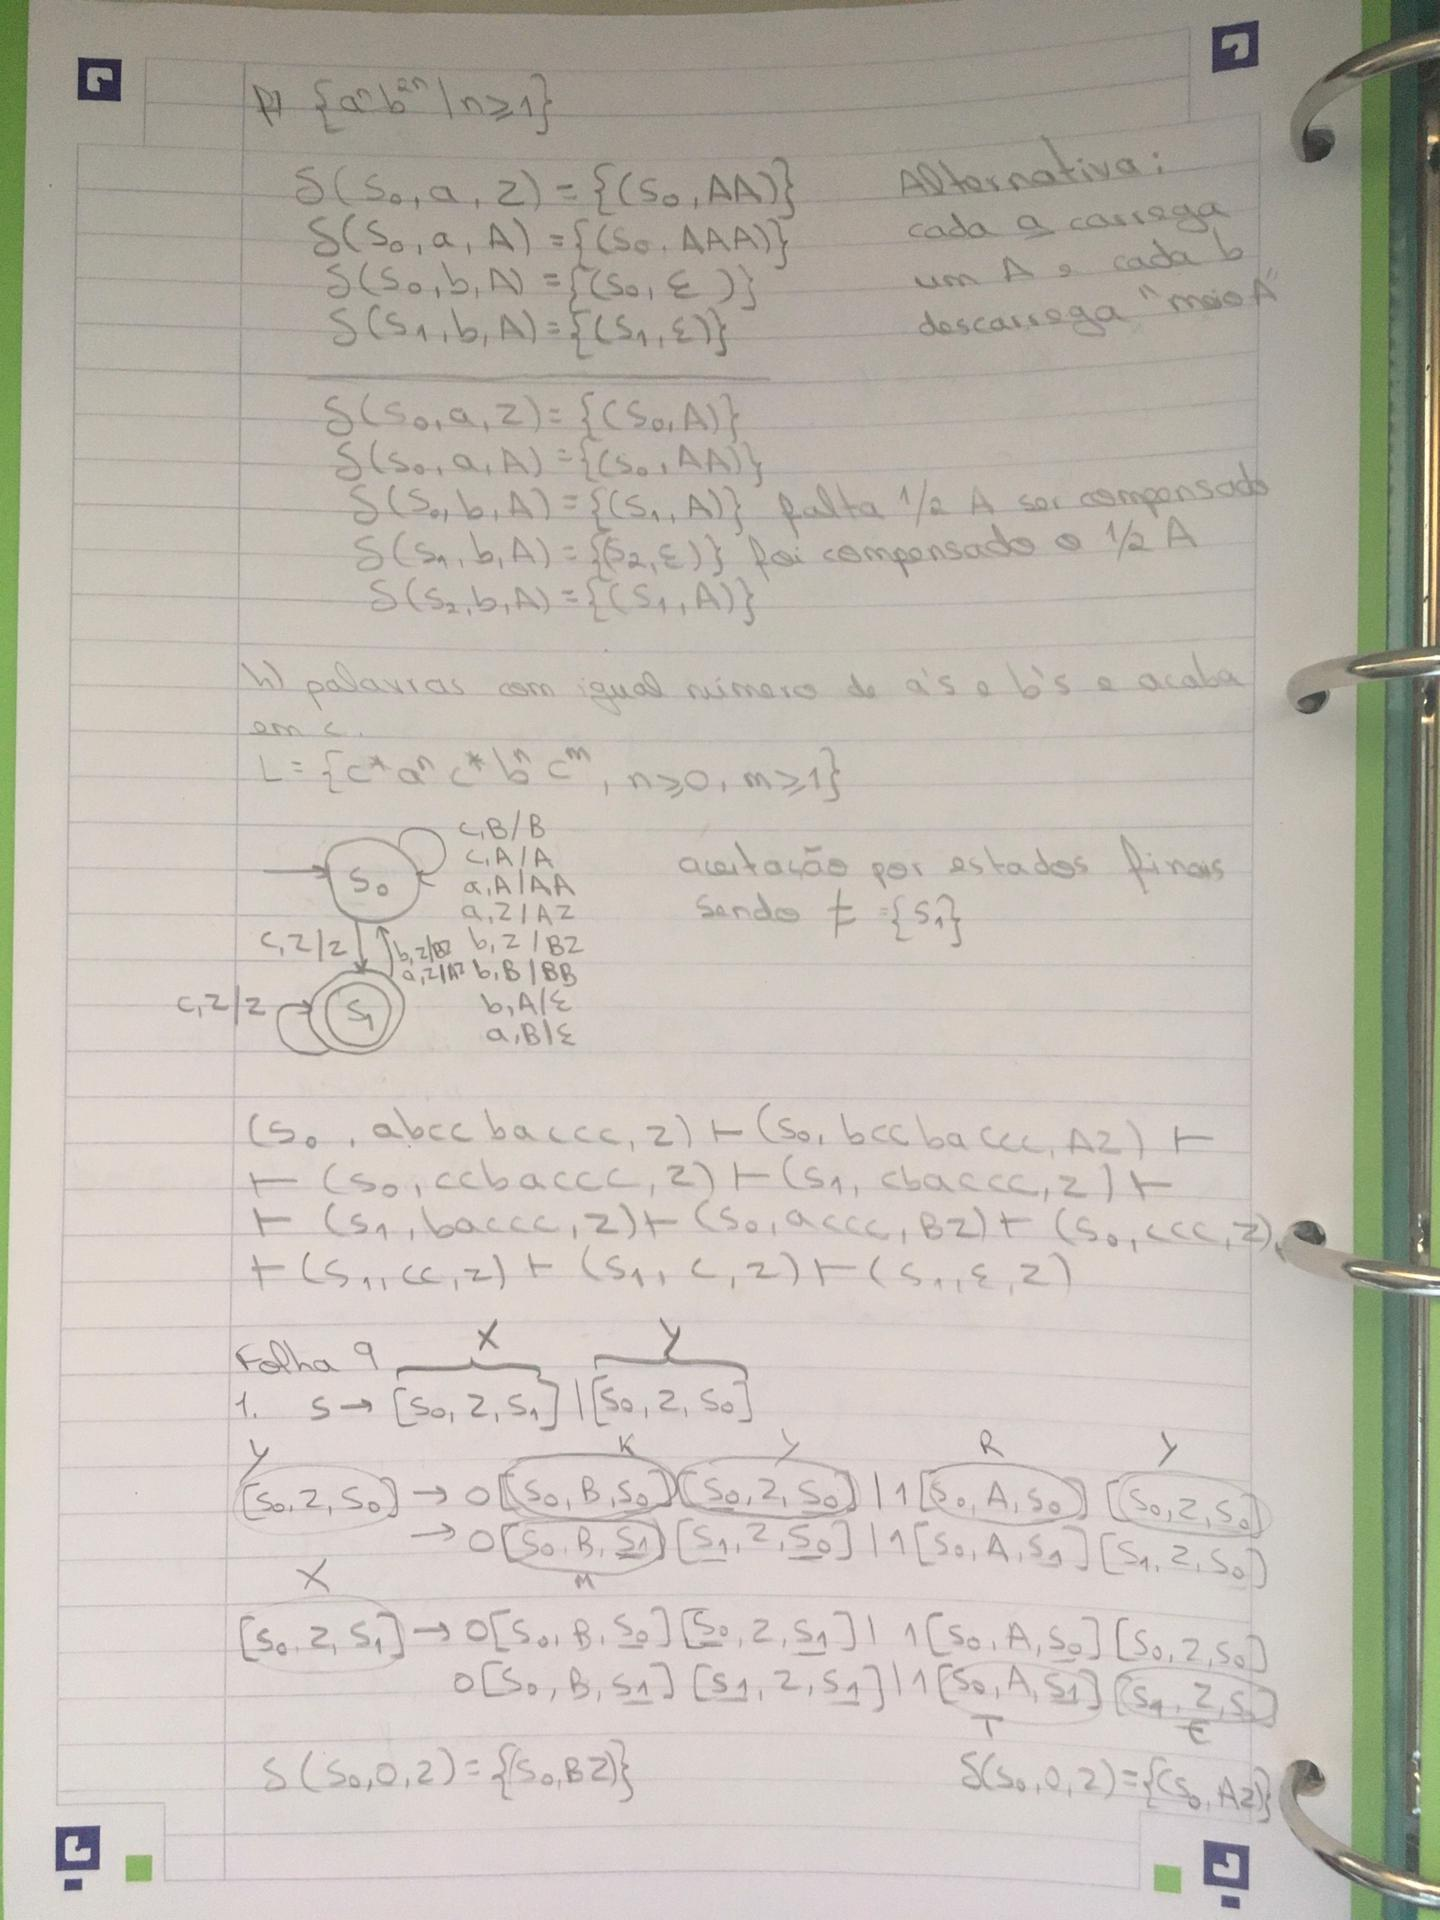 f) {aⁿb²ⁿ | n⩾1}
δ(S₀, a, Z) = {(S₀, AA)}
δ(S₀, a, A) = {(S₀, AAA)}
δ(S₀, b, A) = {(S₀, ε )}
δ(S₁, b, A) = {(S₁, ε)}
Alternativa:
cada a carrega
um A e cada b
descarrega "meio A"
δ(S₀, a, Z) = {(S₀, A)}
δ(S₀, a, A) = {(S₀, AA)}
δ(S₀, b, A) = {(S₁, A)} falta 1/2 A ser compensado
δ(S₁, b, A) = {(S₂, ε)} foi compensado o 1/2 A
δ(S₂, b, A) = {(S₁, A)}
h) palavras com igual número de a's e b's e acaba
em c.
L = {c* aⁿ c* bⁿ cᵐ, n⩾0, m⩾1}
c,B/B
c,A/A
S₀
a,A/AA
a,Z/AZ
c,Z/Z
b,Z/BZ
b,Z/BZ
a,Z/AZ
b,B/BB
c,Z/Z
S₁
b,A/ε
a,B/ε
aceitação por estados finais
sendo F = {S₁}
(S₀, abccbaccc, Z) ⊢ (S₀, bccbaccc, AZ) ⊢
⊢ (S₀, ccbaccc, Z) ⊢ (S₁, cbaccc, Z) ⊢
⊢ (S₁, baccc, Z) ⊢ (S₀, accc, BZ) ⊢ (S₀, ccc, Z)
⊢ (S₁, cc, Z) ⊢ (S₁, c, Z) ⊢ (S₁, ε, Z)
X Y
Folha 9
1. S → [S₀, Z, S₁] | [S₀, Z, S₀]
Y K Y R Y
[S₀, Z, S₀] → 0[S₀, B, S₀][S₀, Z, S₀] | 1[S₀, A, S₀][S₀, Z, S₀]
→ 0[S₀, B, S₁][S₁, Z, S₀] | 1[S₀, A, S₁][S₁, Z, S₀]
X M
[S₀, Z, S₁] → 0[S₀, B, S₀][S₀, Z, S₁] | 1[S₀, A, S₀][S₀, Z, S₀]
0[S₀, B, S₁][S₁, Z, S₁] | 1[S₀, A, S₁][S₁, Z, S
T E
δ(S₀, 0, Z) = {(S₀, BZ)} δ(S₀, 0, Z) = {(S₀, AZ)}